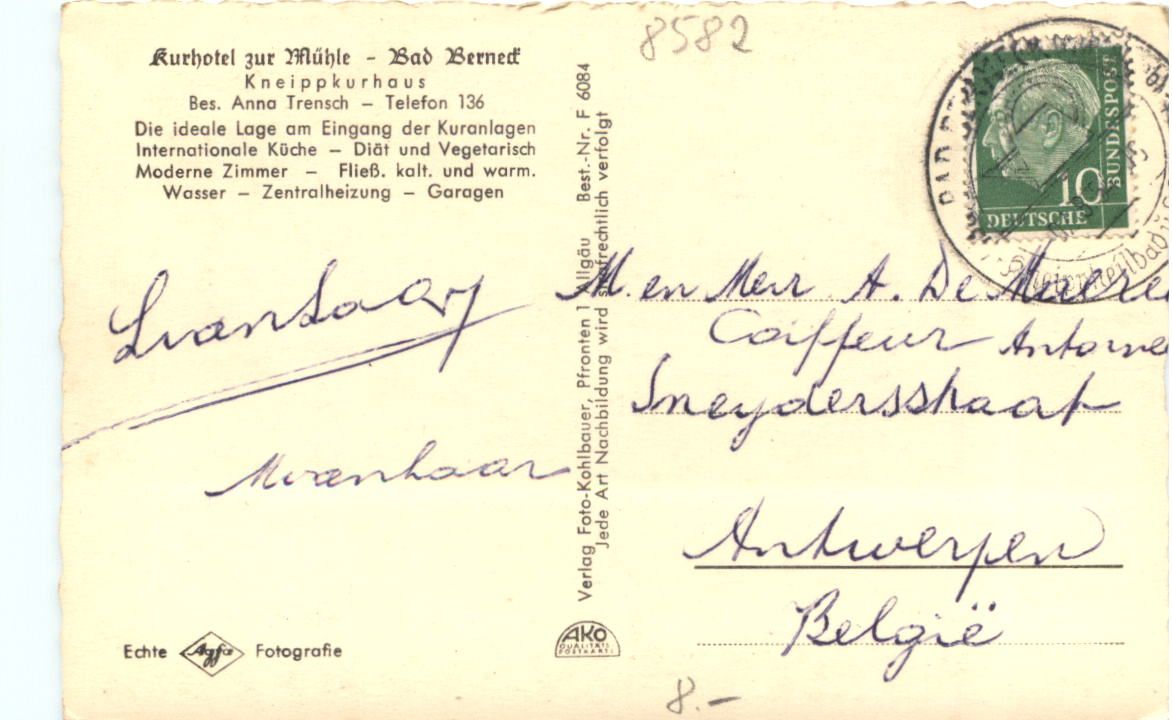 8582
Kurhotel zur Mühle – Bad Berneck
Kneippkurhaus
Bes. Anna Trensch – Telefon 136
Die ideale Lage am Eingang der Kuranlagen
Internationale Küche – Diät und Vegetarisch
Moderne Zimmer – Fließ. kalt. und warm.
Wasser – Zentralheizung – Garagen
Echte Agfa Fotografie
Verlag Foto-Kohlbauer, Pfronten 1 Allgäu Best.-Nr. F 6084
Jede Art Nachbildung wird strafrechtlich verfolgt
AKO
QUALITÄTS
POSTKARTE
BUNDESPOST
10
DEUTSCHE
M. en Mevr A. De
Coiffeur
Sneydersstraat
Antwerpen
België
8.-